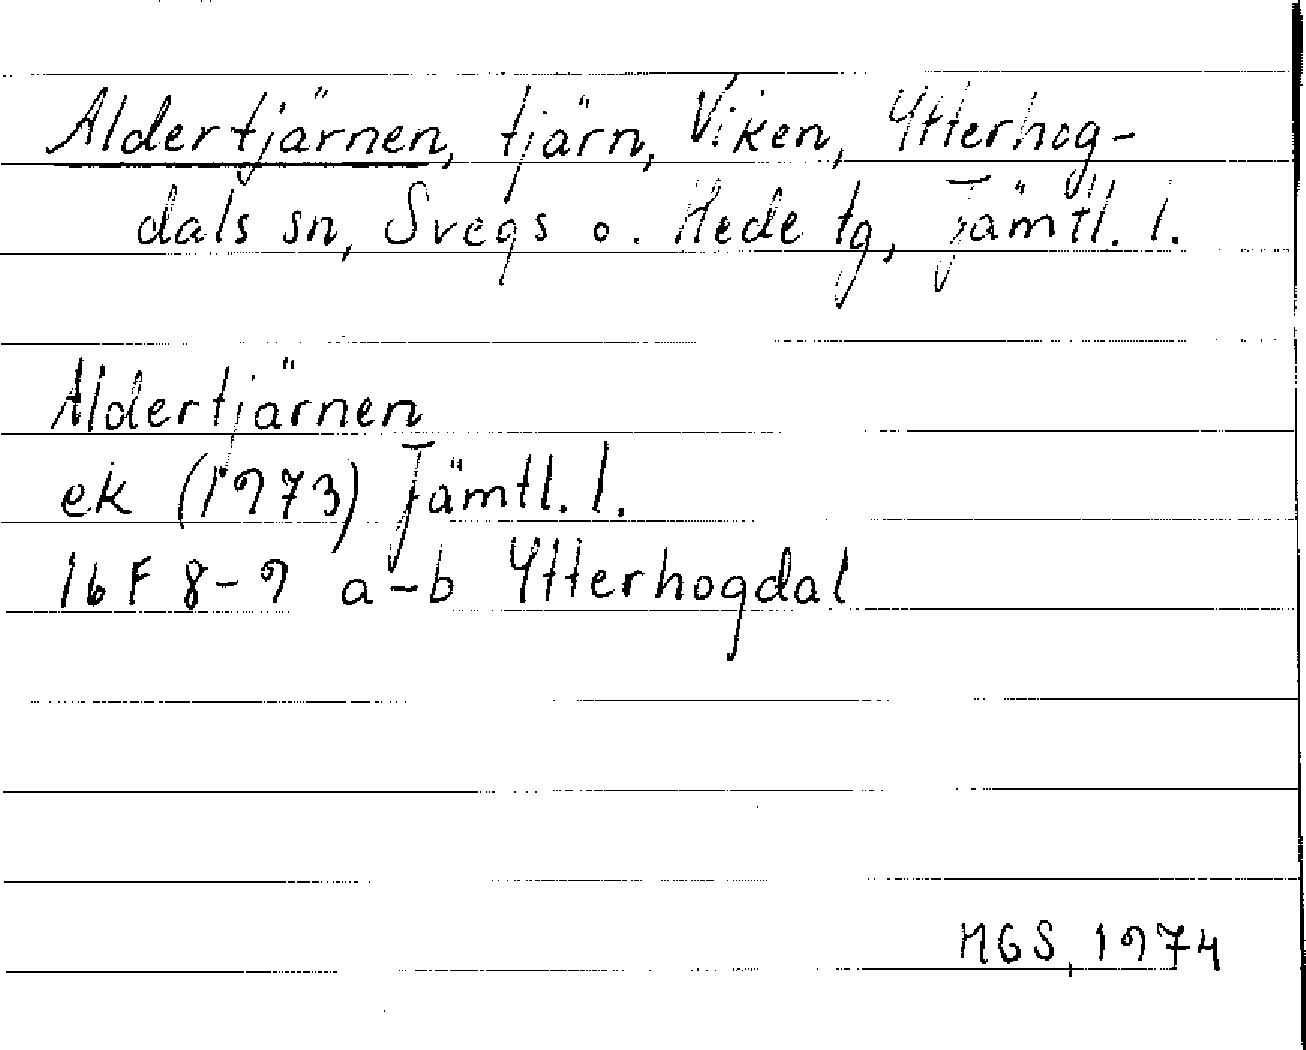 Aldertjärnen, tjärn, Viken, Ytterhog-
dals sn, Svegs o. Hede tg, Jämtl. l.
Aldertjärnen
ek (1973) Jämtl. l.
16 F 8-9 a-b Ytterhogdal
MGS, 1974